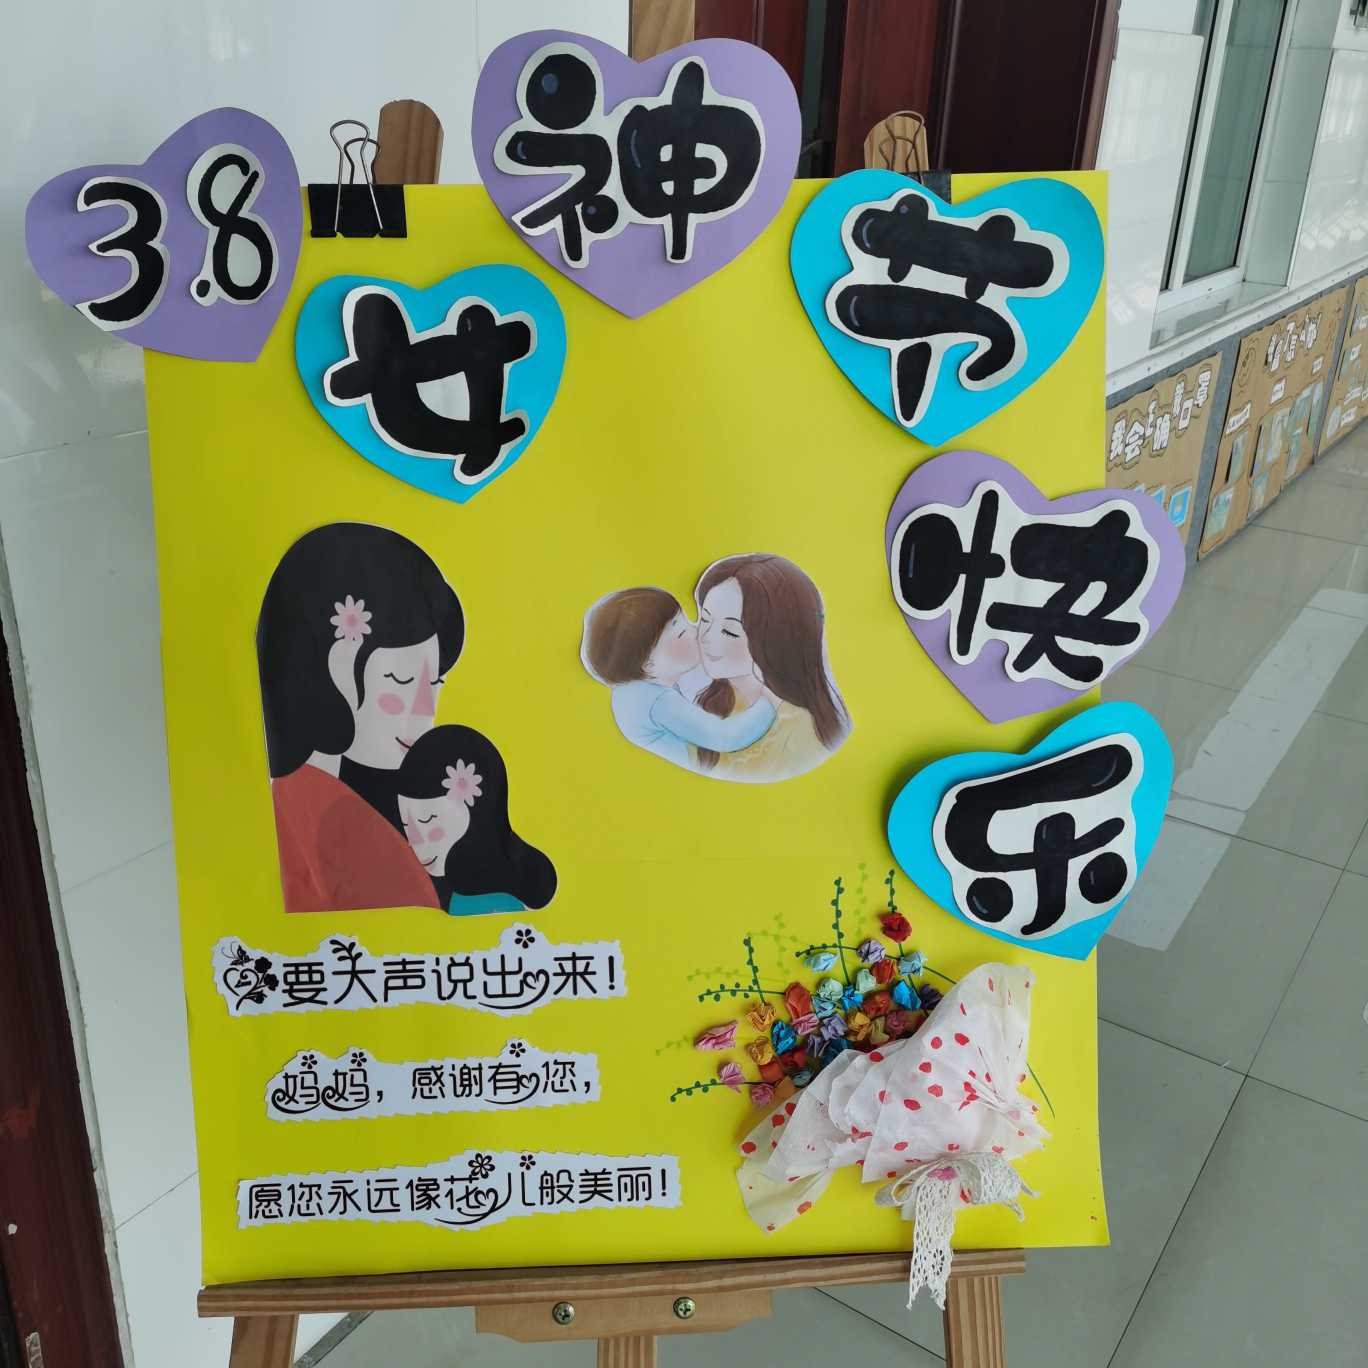 3.8
女神节快乐
爱要大声说出来!
妈妈，感谢有您，
愿您永远像花儿般美丽!